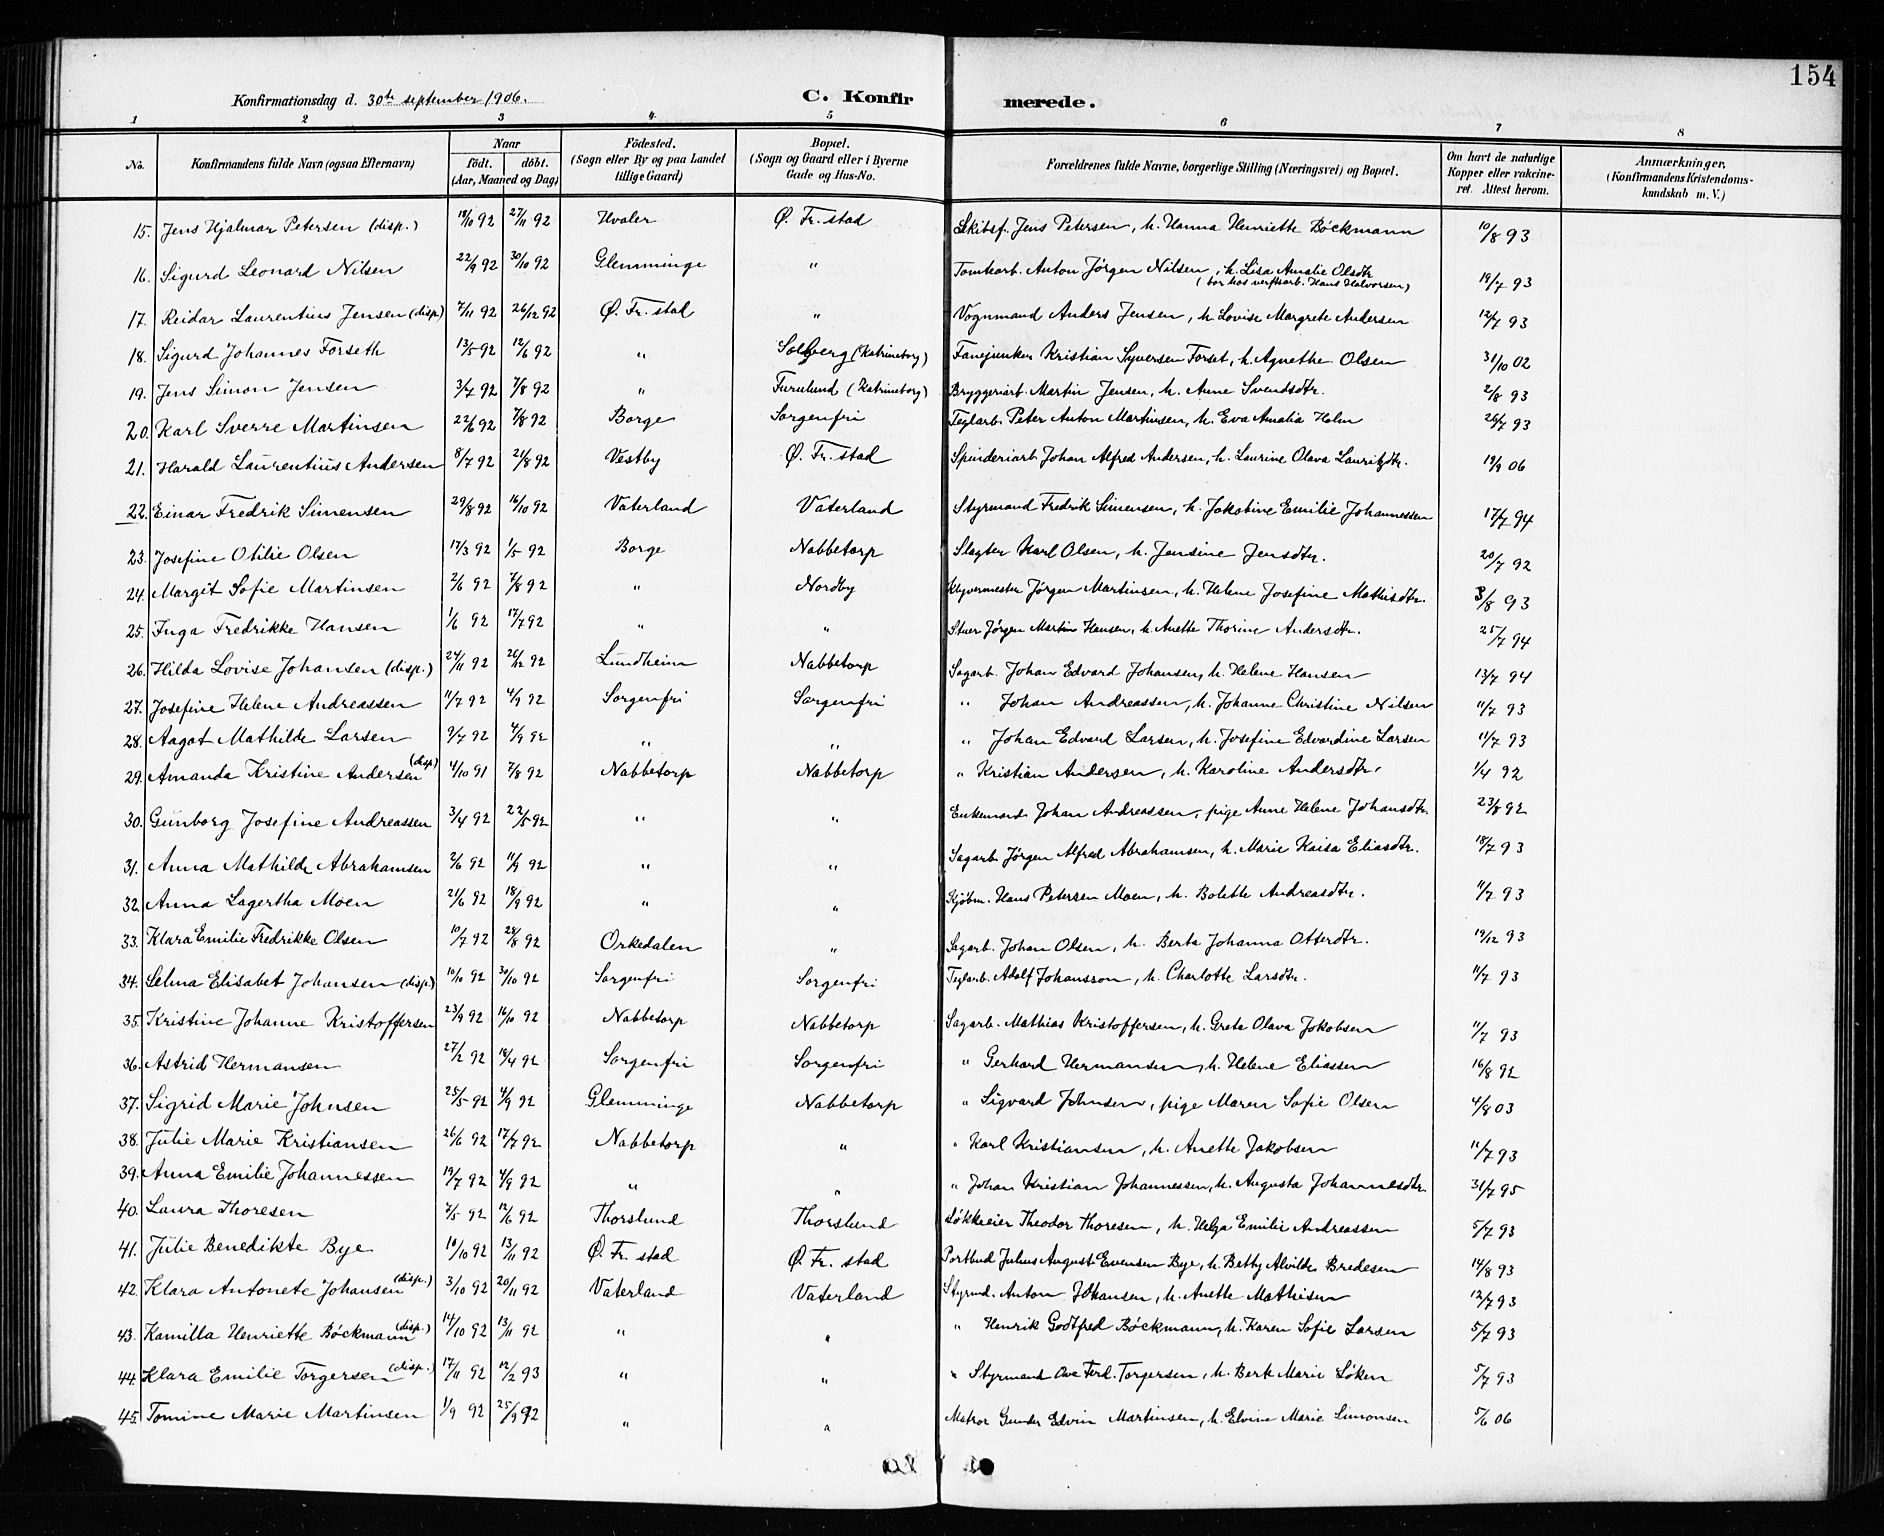 154
Konfirmationsdag d. 30te september 1906. C. Konfirmerede.
1 2 3 4 5 6 7 8
No. Konfirmandens fulde Navn (ogsaa Efternavn) Naar født. døbt. (Aar, Maaned og Dag) Fødested. (Sogn eller By og paa Landet tillige Gaard) Bopæl. (Sogn og Gaard eller i Byerne Gade og Hus-No. Forældrenes fulde Navne, borgerlige Stilling (Næringsvei) og Bopæl. Om havt de naturlige Kopper eller vakcineret. Attest herom. Anmærkninger. (Konfirmandens Kristendomskundskab m. V.)
15. Jens Hjalmar Petersen (disp.) 18/10 92 27/11 92 Hvaler Ø. Fr. stad Skibsf. Jens Petersen, h. Hanna Henriette Bøckmann 10/8 93
16. Sigurd Leonard Nilsen 22/9 92 30/10 92 Glemminge " Tomtearb. Anton Jørgen Nilsen, h. Lisa Amalie Olsdtr (bor hos verftsarb. Hans Halvorsen) 19/7 93
17. Reidar Laurentius Jensen (disp) 7/11 92 26/12 92 Ø. Fr. stad " Vognmand Anders Jensen, h. Lovise Margrete Andersen 12/7 93
18. Sigurd Johannes Forseth 13/5 92 12/6 92 " Solberg (Katrineborg) Fanejunker Kristian Syversen Forset, h. Agnethe Olsen 31/10 02
19. Jens Simon Jensen 3/7 92 7/8 92 " Furulund (Katrineborg) Bryggeriarb. Martin Jensen, h. Anne Svendsdtr. 2/8 93
20. Karl Sverre Martinsen 22/6 92 7/8 92 Borge Sorgenfri Teglarb. Peter Anton Martinsen, h. Eva Amalia Helm 26/7 93
21. Harald Laurentius Andersen 8/7 92 21/8 92 Vestby Ø. Fr. stad Spinderiarb. Johan Alfred Andersen, h. Laurine Olava Lauritzdtr. 19/9 06
22. Einar Fredrik Simensen 29/8 92 16/10 92 Vaterland Vaterland Styrmand Fredrik Simensen, h. Jakobine Emilie Johannessen 17/7 94
23. Josefine Otilie Olsen 17/3 92 1/5 92 Borge Nabbetorp Slagter Karl Olsen, h. Jensine Jensdtr. 20/7 92
24. Margit Sofie Martinsen 2/6 92 7/8 92 " Nordby Klyvermester Jørgen Martinsen, h. Helene Josefine Mathisdtr. 3/8 93
25. Inga Fredrikke Hansen 1/6 92 17/7 92 " " Stuer Jørgen Martin Hansen, h. Anette Thorine Andersdtr. 25/7 94
26. Hilda Lovise Johansen (disp.) 24/11 92 26/12 92 Lundheim Nabbetorp Sagarb. Johan Edvard Johansen, h. Helene Hansen 13/7 94
27. Josefine Helene Andreassen 11/7 92 4/9 92 Sorgenfri Sorgenfri " Johan Andreassen, h. Johanne Christine Nilsen 11/7 93
28. Aagot Mathilde Larsen 9/7 92 4/9 92 " " " Johan Edvard Larsen, h. Josefine Edvardine Larsen 11/7 93
29. Amanda Kristine Andersen (disp) 4/10 91 7/8 92 Nabbetorp Nabbetorp " Kristian Andersen, h. Karoline Andersdtr. 1/4 92
30. Gunborg Josefine Andreassen 3/4 92 22/5 92 " " Enkemand Johan Andreassen, pige Anne Helene Johansdtr. 23/8 92
31. Anna Mathilde Abrahamsen 2/6 92 11/9 92 " " Sagarb. Jørgen Alfred Abrahamsen, h. Marie Kaisa Eliasdtr. 18/7 93
32. Anna Lagertha Moen 21/6 92 18/9 92 " " Kjøbm. Hans Petersen Moen, h. Bolette Andreasdtr. 11/7 93
33. Klara Emilie Fredrikke Olsen 10/7 92 28/8 92 Orkedalen " Sagarb. Johan Olsen, h. Berta Johanna Ottersdtr. 19/12 93
34. Selma Elisabet Johansen (disp.) 10/10 92 30/10 92 Sorgenfri Sorgenfri Teglarb. Adolf Johansson, h. Charlotte Larsdtr. 11/7 93
35. Kristine Johanne Kristoffersen 23/9 92 16/10 92 Nabbetorp Nabbetorp Sagarb. Mathias Kristoffersen, h. Greta Olava Jakobsen 11/7 93
36. Astrid Hermansen 27/2 92 18/4 92 Sorgenfri Sorgenfri " Gerhard Hermansen, h. Helene Eliassen 16/8 92
37. Sigrid Marie Johnsen 25/5 92 4/9 92 Glemminge Nabbetorp " Sigvard Johnsen, pige Maren Sofie Olsen 4/8 03
38. Julie Marie Kristiansen 26/6 92 17/7 92 Nabbetorp " " Karl Kristiansen, h. Anette Jakobsen 11/7 93
39. Anna Emilie Johannessen 19/7 92 4/9 92 " " " Johan Kristian Johannessen, h. Augusta Johannesdtr 31/7 95
40. Laura Thoresen 7/5 92 12/6 92 Thorslund Thorslund Løkkeeier Theodor Thoresen, h. Helga Emilie Andreassen 5/7 93
41. Julie Benedikte Bye 10/10 92 13/11 92 Ø. Fr. stad Ø. Fr. stad Portbud Julius August Evensen Bye, h. Betty Alvilde Bredesen 14/8 93
42. Klara Antonete Johansen (disp.) 3/10 92 20/11 92 Vaterland Vaterland Styrmd. Anton Johansen, h. Anette Mathisen 12/7 93
43. Kamilla Henriette Bøckmann (disp.) 14/10 92 13/11 92 " " " Henrik Godtfred Bøckmann, h. Karen Sofie Larsen 5/7 93
44. Klara Emilie Torgersen (disp.) 17/11 92 12/2 93 " " " Styrmand Ove Ferd. Torgersen, h. Berte Marie Løken 5/7 93
45. Tomine Marie Martinsen 1/9 92 25/9 92 " " Matros Gunder Edvin Martinsen, h. Elvine Marie Simonsen 5/6 06